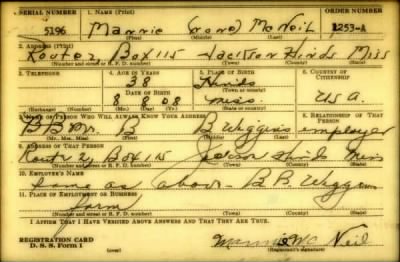 SERIAL NUMBER 1. NAME (Print) ORDER NUMBER
5196 Mannie (none) McNeil 1253-A
(First) (Middle) (Last)
2. ADDRESS (Print)
Route 2 Box 115 Jackson Hinds Miss
(Number and street or R. F. D. number) (Town) (County) (State)
3. TELEPHONE 4. AGE IN YEARS 5. PLACE OF BIRTH 6. COUNTRY OF CITIZENSHIP
38 Hinds
DATE OF BIRTH (Town or county)
8 8 08 Miss U S A
(Exchange) (Number) (Mo.) (Day) (Yr.) (State or country)
7. NAME OF PERSON WHO WILL ALWAYS KNOW YOUR ADDRESS 8. RELATIONSHIP OF THAT PERSON
Mr. B B Wiggins employer
(Mr., Mrs., Miss) (First) (Middle) (Last)
9. ADDRESS OF THAT PERSON
Route 2 Box 115 Jackson Hinds Miss
(Number and street or R. F. D. number) (Town) (County) (State)
10. EMPLOYER'S NAME
Same as above - B. B. Wiggins
11. PLACE OF EMPLOYMENT OR BUSINESS
farm
(Number and street or R. F. D. number) (Town) (County) (State)
I AFFIRM THAT I HAVE VERIFIED ABOVE ANSWERS AND THAT THEY ARE TRUE.
REGISTRATION CARD
D. S. S. Form 1 Mannie Mc Neil
(over) (Registrant's signature)